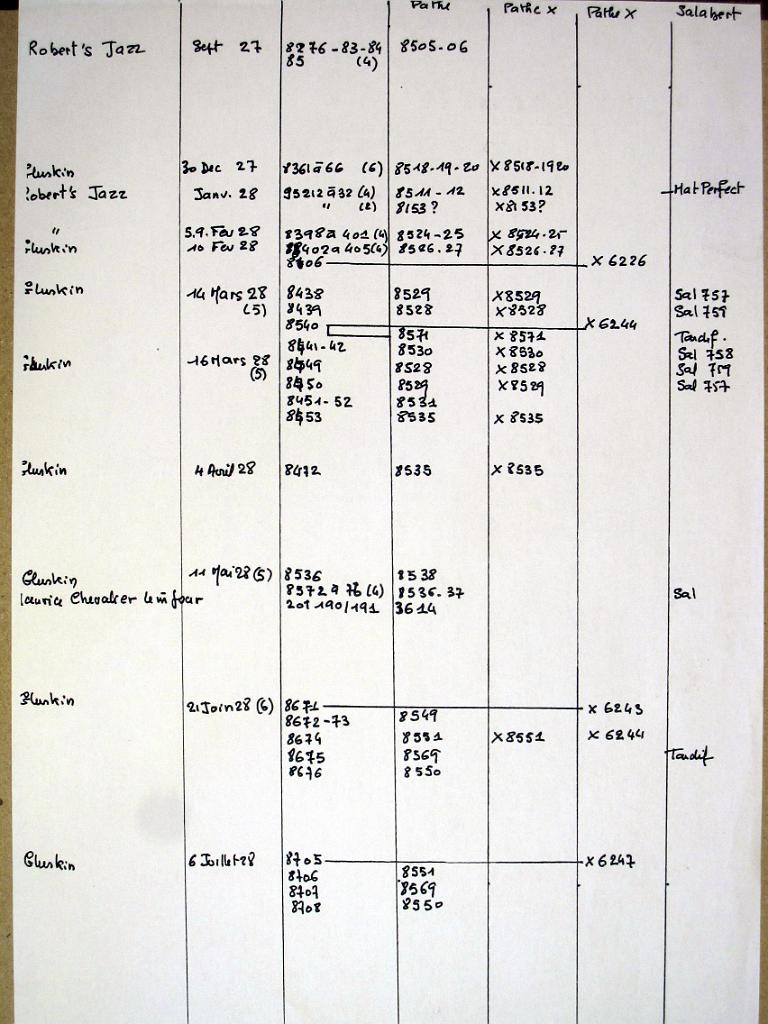 Pathe Pathe X Pathe X Salabert
Robert's Jazz Sept 27 8276-83-84 8505-06
85 (4)
Gluskin 30 Dec 27 8361 à 66 (6) 8518-19-20 X 8518-1920
Robert's Jazz Janv. 28 95212 à 32 (4) 8511-12 X8511.12 Hat Perfect
" (2) 8153? X8153?
" 5.9. Fev 28 8398 à 401 (4) 8524-25 X 8524-25
Gluskin 10 Fev 28 8402 à 405 (4) 8526.27 X 8526-27
8406 X 6226
Gluskin 14 Mars 28 8438 8529 X8529 Sal 757
(5) 8439 8528 X8528 Sal 759
8540 X 6244
8571 X 8571 Tardif.
8441-42 8530 X8530 Sal 758
Gluskin 16 Mars 28 8449 8528 X8528 Sal 759
(5) 8450 8529 X8529 Sal 757
8451-52 8531
8453 8535 X 8535
Gluskin 4 Avril 28 8472 8535 X 8535
Gluskin 11 Mai 28 (5) 8536 8538
8572 à 76 (4) 8536-37 Sal
Maurice Chevalier 201 190/191 3614
Gluskin 21 Join 28 (6) 8671 X 6243
8672-73 8549
8674 8551 X8551 X 6244
8675 8569 Tardif
8676 8550
Gluskin 6 Juillet 28 8705 X 6247
8706 8551
8707 8569
8708 8550